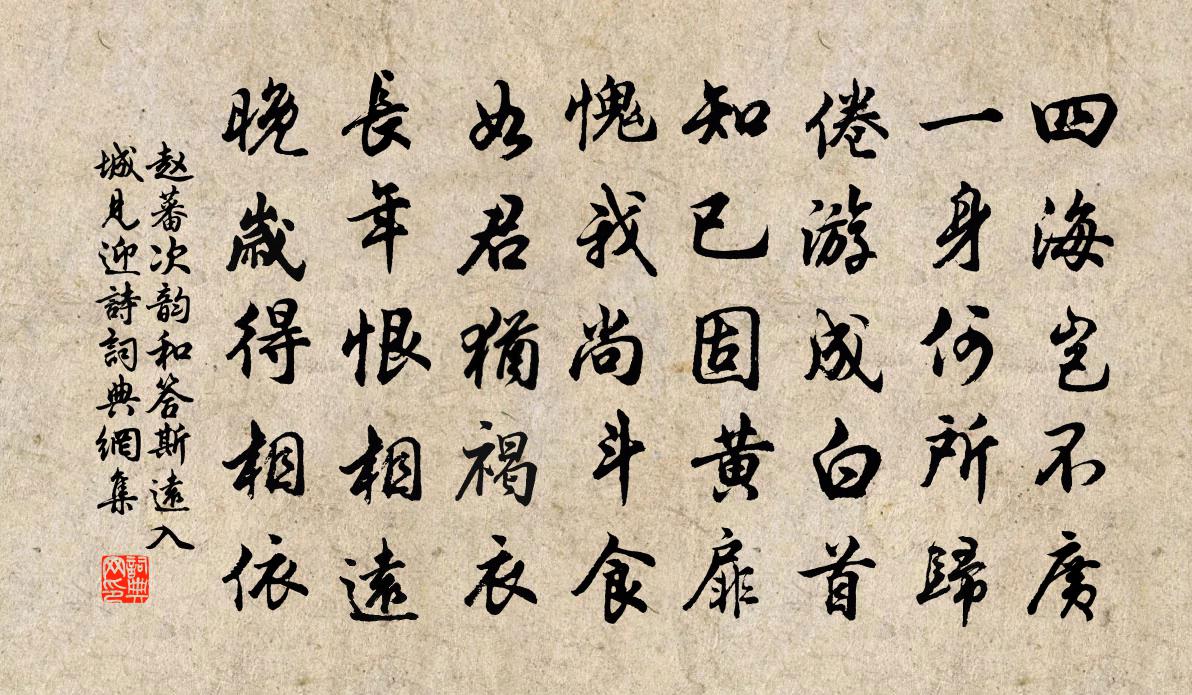 四海岂不广
一身何所歸
倦游成白首
知已固黄扉
愧我尚斗食
如君猶褐衣
長年恨相遠
晚歲得相依
赵蕃次韵和答斯遠入
城見迎詩詞典網集
詞典
网印